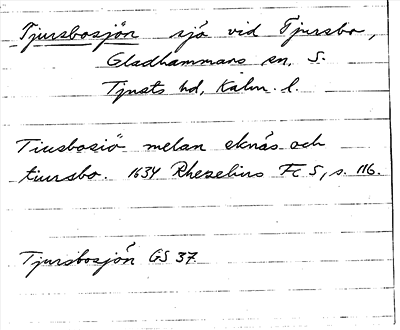 Tjursbosjön sjö vid Tjursbo,
Gladhammars sn, S.
Tjusts hd, Kalm. l.
Tiusbosiö melan eknäs och
tiursbo. 1634 Rhezelius Fc 5, s. 116.
Tjursbosjön GS 37